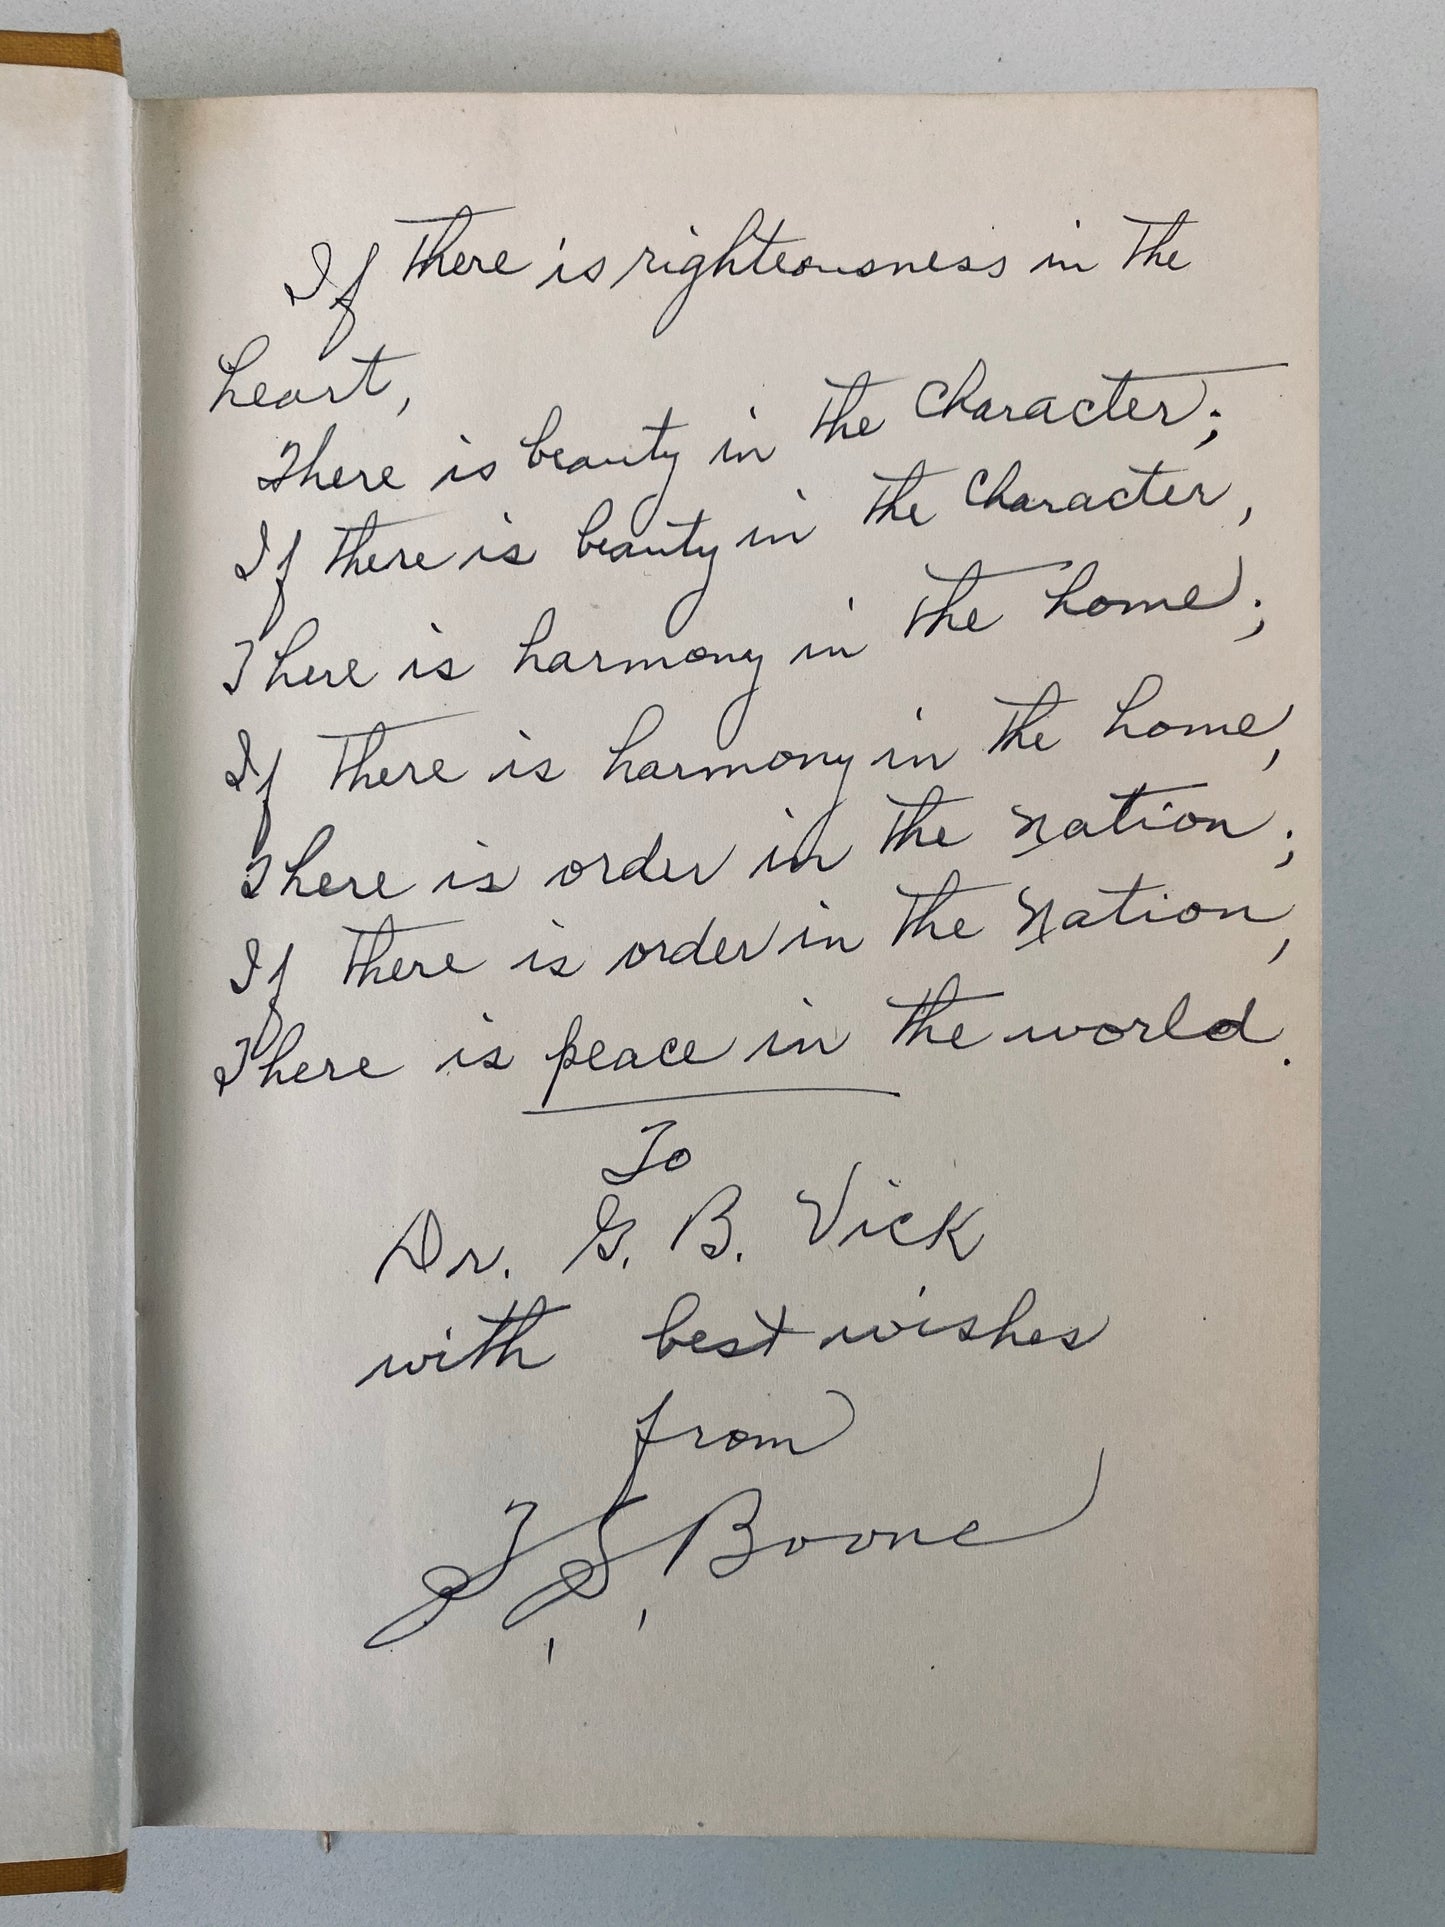 If there is righteousness in the
heart,
There is beauty in the character;
If there is beauty in the character,
There is harmony in the home;
If there is harmony in the home,
There is order in the nation;
If there is order in the nation,
There is peace in the world.
To
Dr. G. B. Vick
with best wishes
from
Boone